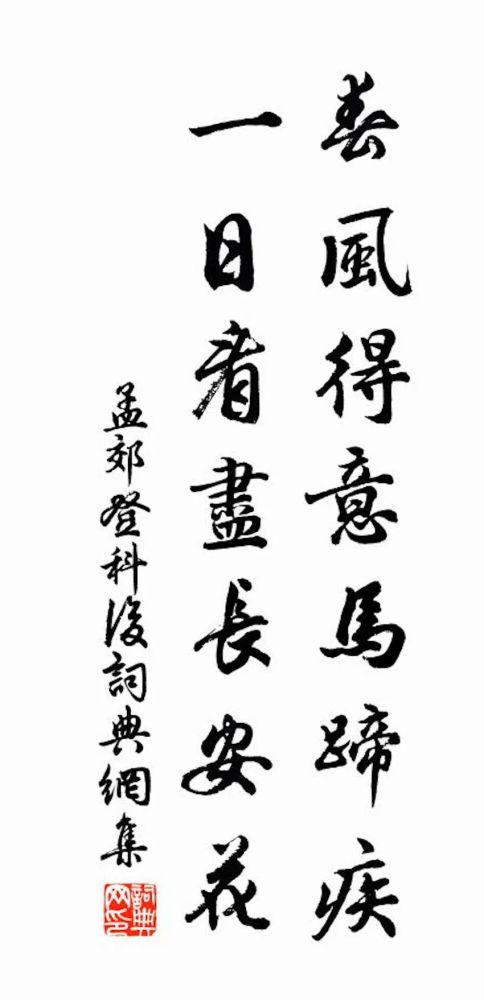 春風得意馬蹄疾
一日看盡長安花
孟郊登科後詞典網集
詞典网印